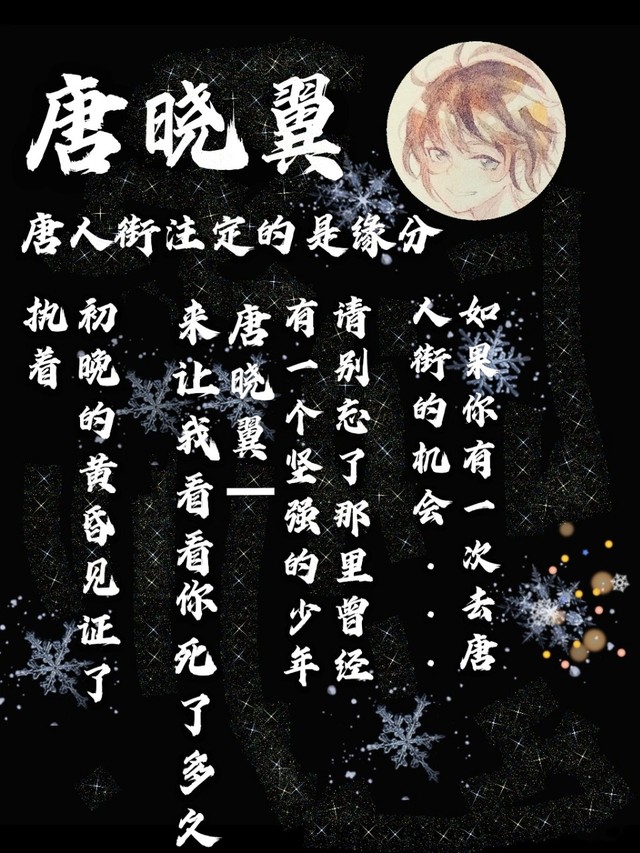 唐晓翼
唐人街注定的是缘分
如果你有一次去唐
人街的机会...
请别忘了那里曾经
有一个坚强的少年
唐晓翼一
来让我看看你死了多久
初晚的黄昏见证了
执着